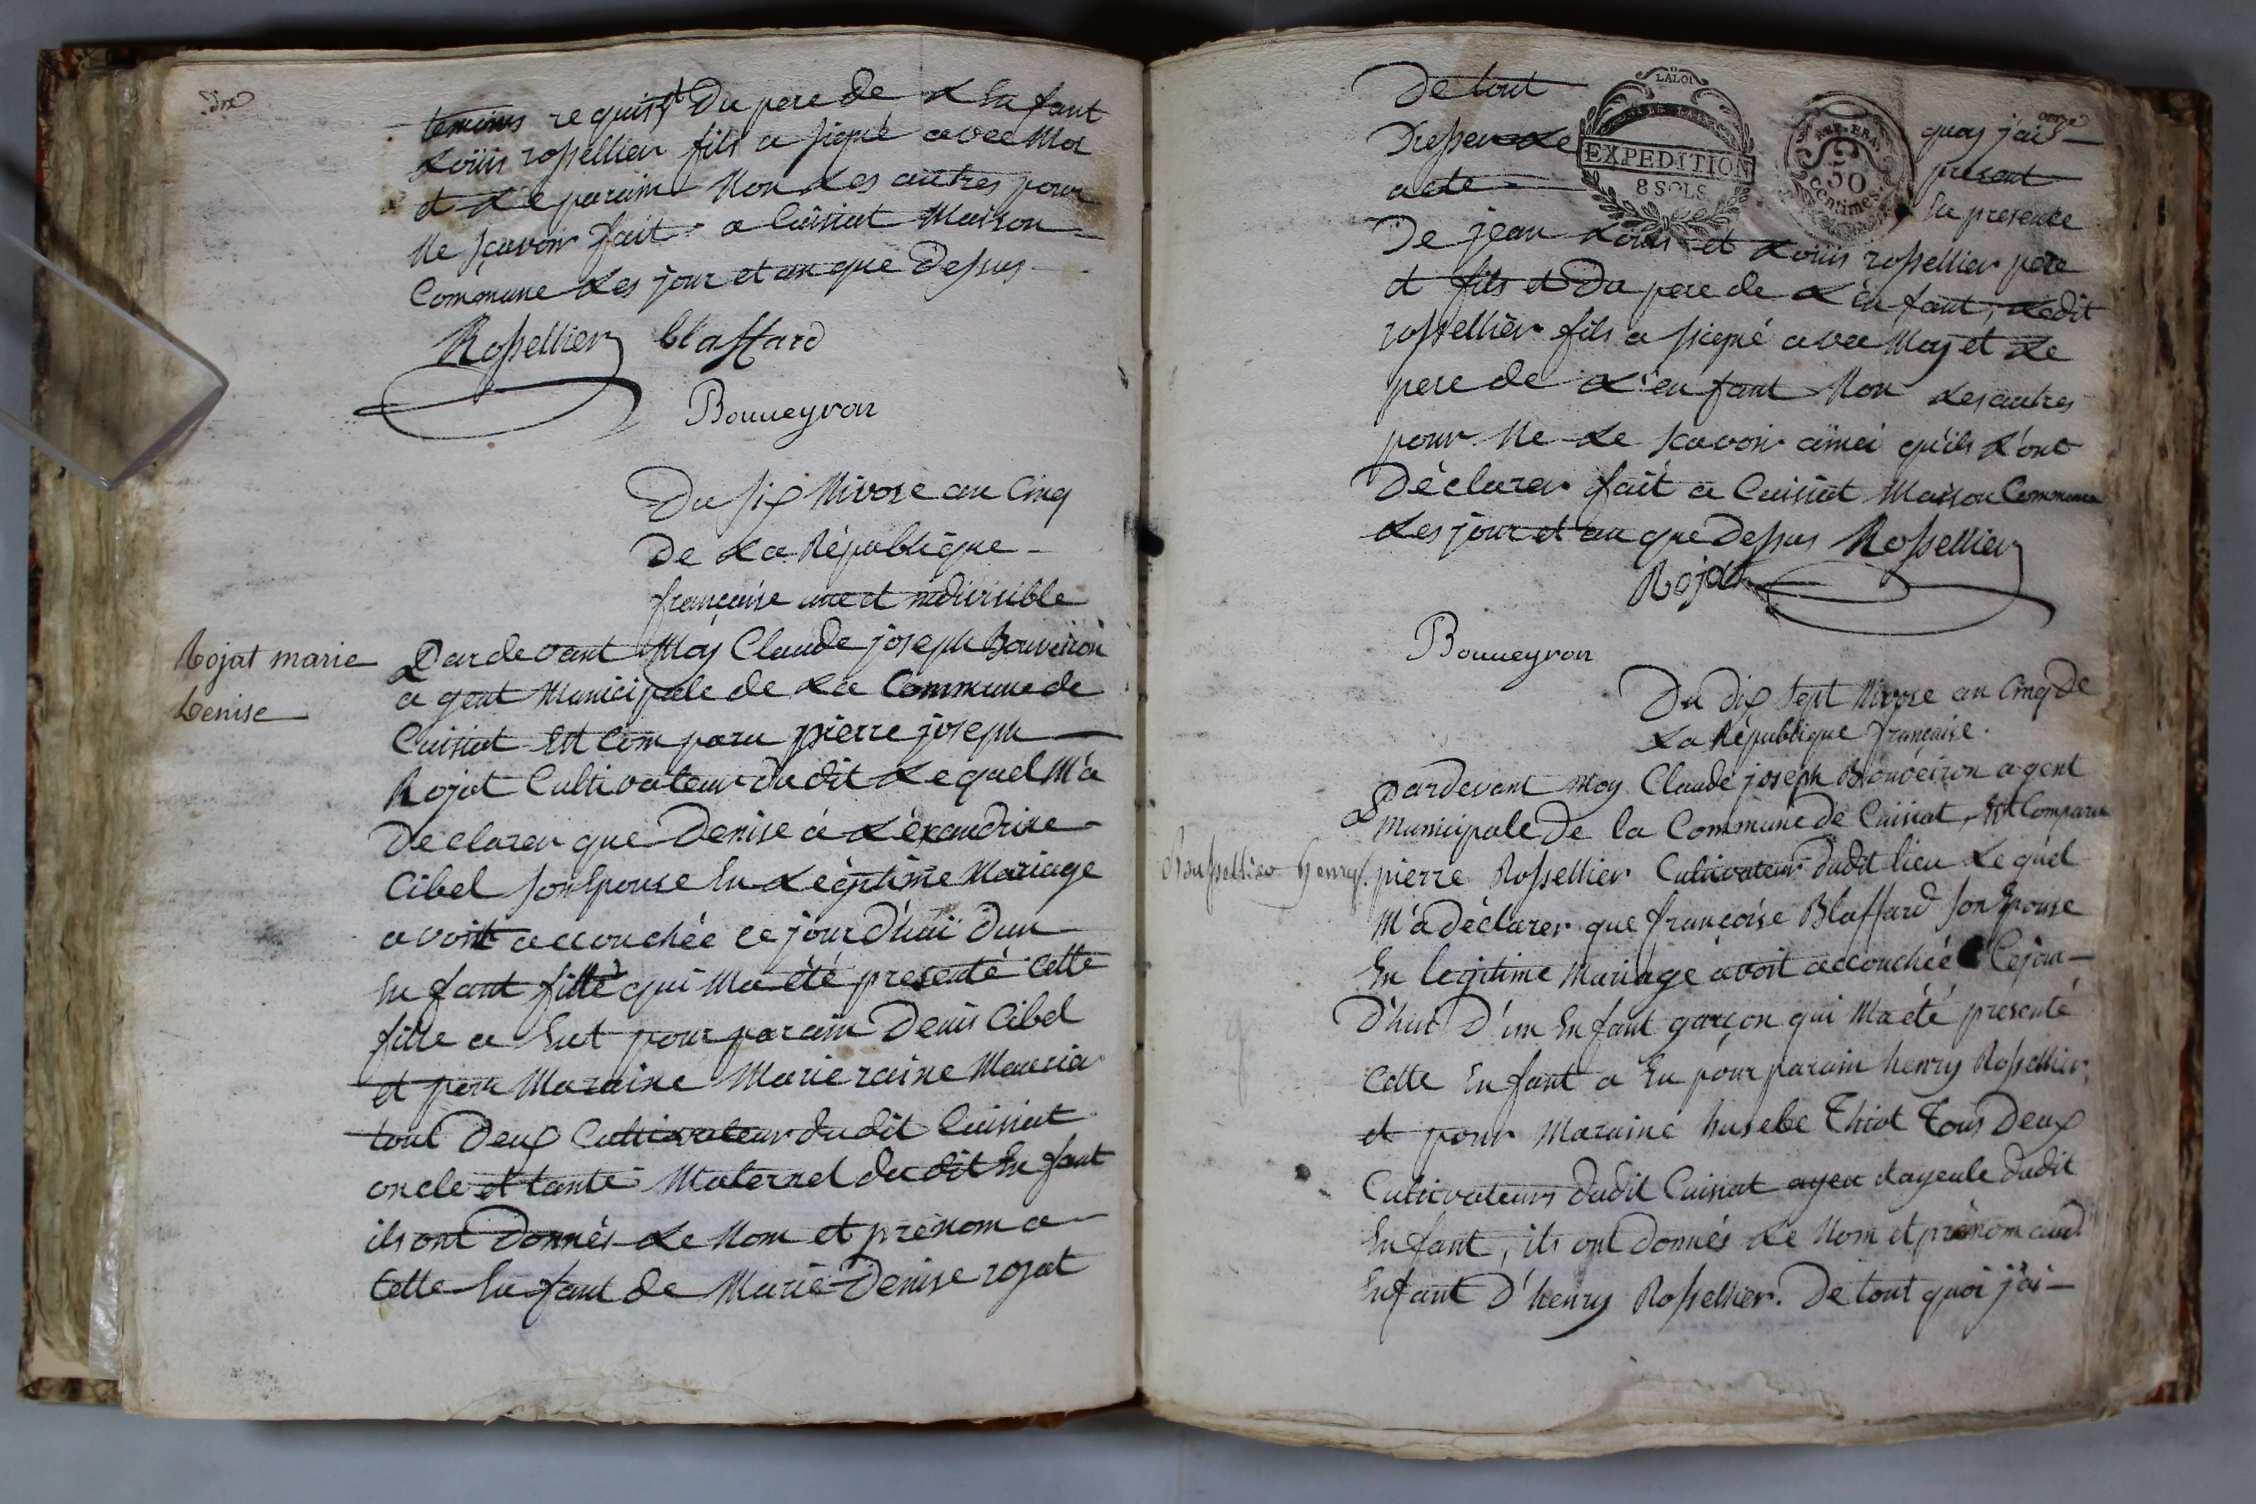 dix
temoins requis et Du pere de L'Enfant
Loüis rossellier fils a signé avec Moi
et Le parain Non Les autres pour
Ne sçavoir fait a Cuisiat Maison
Commune Les jour et an que Dessus
Rossellier blaffard
Bouueyron
Du six Nivose an Cinq
De La République
française une et indivisible
Rojat marie
Denise
Pardevant Moy Claude joseph Bouveiron
agent Municipale de La Commune de
Cuisiat Est Comparu pierre joseph
Rojat Cultivateur dudit Lequel M'a
Declarer que Denise á Léxandrine
Cibel son Epouse En Légitime Mariage
avoit accouchée ce jourd'hui d'un
Enfant fille qui Ma été presenté Cette
fille a Eut pour parain Denis Cibel
et pour Maraine Marie raine
tout Deux Cultivateur dudit Cuisiat
oncle et tante Maternel du dit Enfant
ils ont Donnés Le Nom et prénom a
Cette Enfant de Marie Denise rojat
onze
De tout quoy j'ai
LA LOI
EXPEDITION
8 SOLS
50
Centimes
Dresser Le present
acte En presence
De jean Louis et Loüis rossellier pere
et fils et Du pere de L'enfant, Ledit
rossellier fils a signé avec Moy et Le
pere de L'enfant Non Les autres
pour Ne Le sçavoir ainci qu'ils L'ont
Déclarer fait a Cuisiat Maison Commune
Les jour et an que Dessus Rossellier
Rojat
Bouueyron
Du dix sept Nivose an Cinq de
La République française.
Pardevant Moy Claude joseph Bouveiron agent
Municipale De la Commune de Cuisiat, Est Comparu
Roussellier henry.
pierre Rossellier Cultivateur dudit lieu Lequel
M'a déclarer que françoise Blaffard son Epouse
En legitime Mariage avoit accouchée Cejour
D'hui D'un Enfant garçon qui Ma été presenté
Cette Enfant a Eu pour parain henry Rossellier
et pour Maraine husebe Thiot Tous Deux
Cultivateurs dudit Cuisiat ayeu et ayeule dudit
Enfant, ils ont donnés Le Nom et prénom aud
Enfant D'henry Rossellier. De tout quoi j'ai